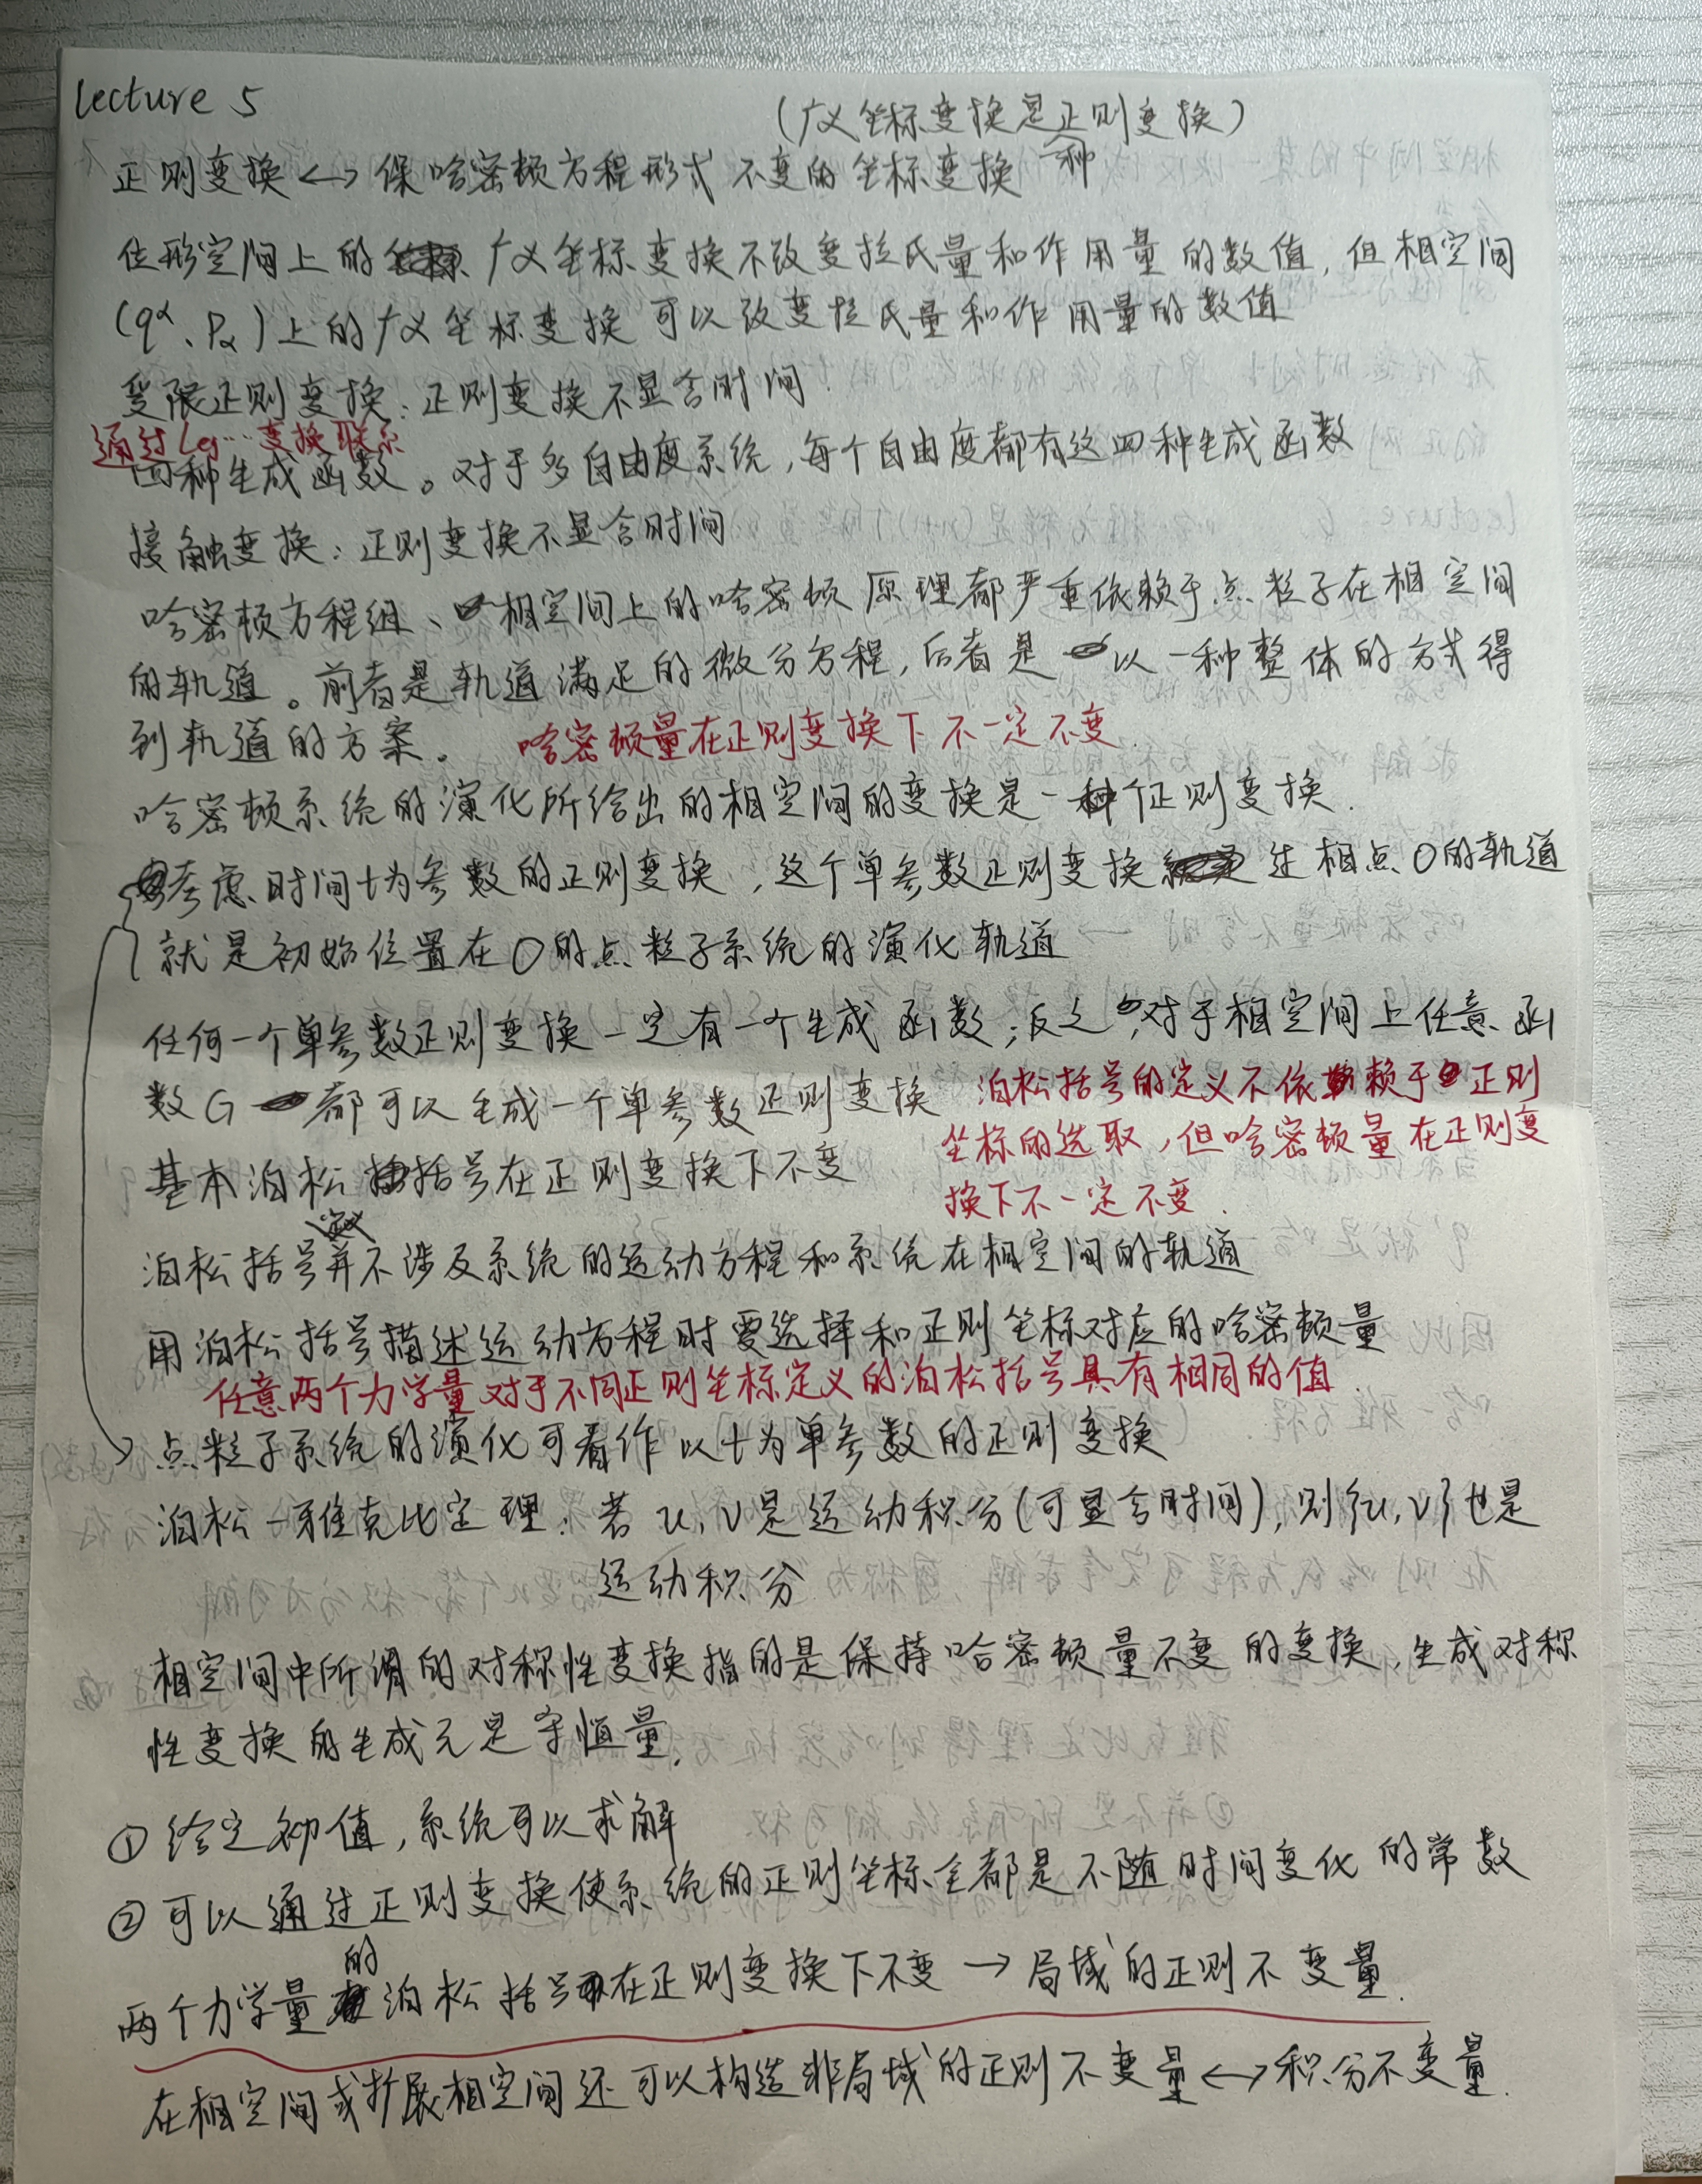 lecture 5
(广义坐标变换是一种正则变换)
正则变换 ↔ 保哈密顿方程形式不变的坐标变换
位形空间上的广义坐标变换不改变拉氏量和作用量的数值, 但相空间
(q^α、P_α)上的广义坐标变换可以改变拉氏量和作用量的数值
受限正则变换: 正则变换不显含时间.
通过Leg…变换联系
四种生成函数。对于多自由度系统, 每个自由度都有这四种生成函数
接触变换: 正则变换不显含时间
哈密顿方程组、相空间上的哈密顿原理都严重依赖于点粒子在相空间
的轨道。前者是轨道满足的微分方程, 后者是以一种整体的方式得
到轨道的方案。 哈密顿量在正则变换下不一定不变.
哈密顿系统的演化所给出的相空间的变换是一个正则变换.
考虑时间t为参数的正则变换, 这个单参数正则变换过相点O的轨道
就是初始位置在O的点粒子系统的演化轨道
任何一个单参数正则变换一定有一个生成函数; 反之, 对于相空间上任意函
数G都可以生成一个单参数正则变换 泊松括号的定义不依赖于正则
坐标的选取, 但哈密顿量在正则变
基本泊松括号在正则变换下不变
换下不一定不变.
泊松括号并不涉及系统的运动方程和系统在相空间的轨道
用泊松括号描述运动方程时要选择和正则坐标对应的哈密顿量
任意两个力学量对于不同正则坐标定义的泊松括号具有相同的值.
点粒子系统的演化可看作以t为单参数的正则变换
泊松-雅克比定理: 若u, v是运动积分(可显含时间), 则{u, v}也是
运动积分
相空间中所谓的对称性变换指的是保持哈密顿量不变的变换, 生成对称
性变换的生成元是守恒量.
① 给定初值, 系统可以求解
② 可以通过正则变换使系统的正则坐标全都是不随时间变化的常数
两个力学量的泊松括号在正则变换下不变 → 局域的正则不变量.
在相空间或扩展相空间还可以构造非局域的正则不变量 ↔ 积分不变量.